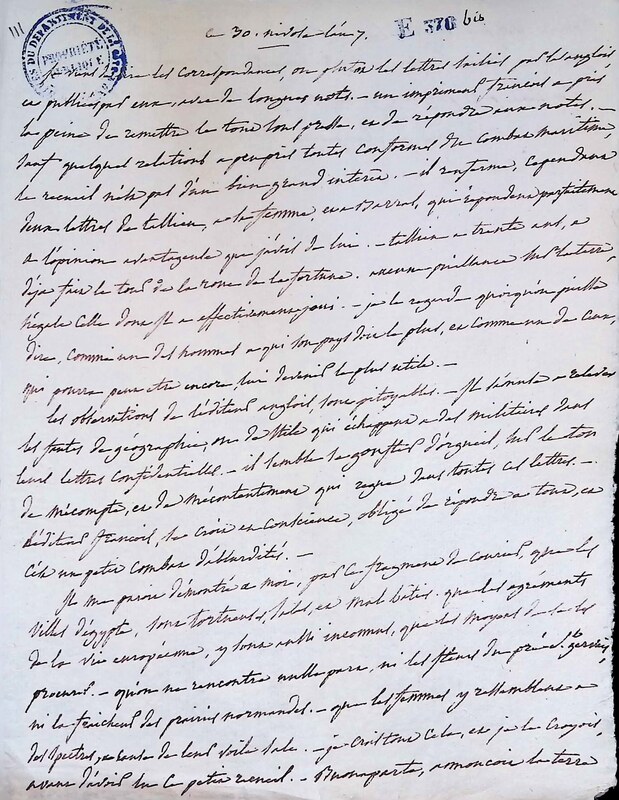 111
ce 30. nivose l'an 7.
E 370 bis
DU DEPARTEMENT DE LA
PROPRIÉTÉ
PUBLIQUE
je viens de lire les correspondances, ou plutôt les lettres saisies par les anglois
et publiées par eux, avec de longues notes. - un imprimeur francois a pris
la peine de remettre le tout sous presse, et de répondre aux notes. -
sauf quelques relations a peu près toutes conformes du combat maritime,
le recueil n'est pas d'un bien grand interet. - il renferme, cependant
deux lettres de tallien, a sa femme, et a Barras, qui répondent parfaitement
a l'opinion avantageuse que j'avois de lui. - tallien a trente ans, a
déja fait le tour de la roue de la fortune. aucune puissance sur la terre,
n'égale celle dont il a effectivement joui. - je le regarde quoiqu'on puisse
dire, comme un des hommes a qui son pays doit le plus, et comme un de ceux
qui pourra peut etre encore, lui devenir le plus utile. -
les observations de l'éditeur anglois, sont pitoyables. - Il s'amuse a relever
les fautes de géographie, ou de stile qui échappent a des militaires dans
leurs lettres confidentielles. - il semble se gonfler d'orgueil, sur le ton
de mécompte, et de mécontentement qui regne dans toutes ces lettres. -
l'éditeur francois, se croit en conscience, obligé de répondre a tout, et
c'est un petit combat d'absurdités. -
Il me paroit démontré a moi, par ce fragment de courier, que les
villes d'égypte, sont tortueuses, sales, et mal bâties. que les agréments
de la vie européenne, y sont aussi inconnus, que les moyens de se les
procurer. - qu'on ne rencontre nulle part, ni les fleurs du pré St gervais,
ni la fraicheur des prairies normandes. - que les femmes y ressemblent a
des spectres, a cause de leur voile sale. - je crois tout cela, et je le croyois
avant d'avoir lu ce petit recueil. - Buonaparte, a moncoie la terre